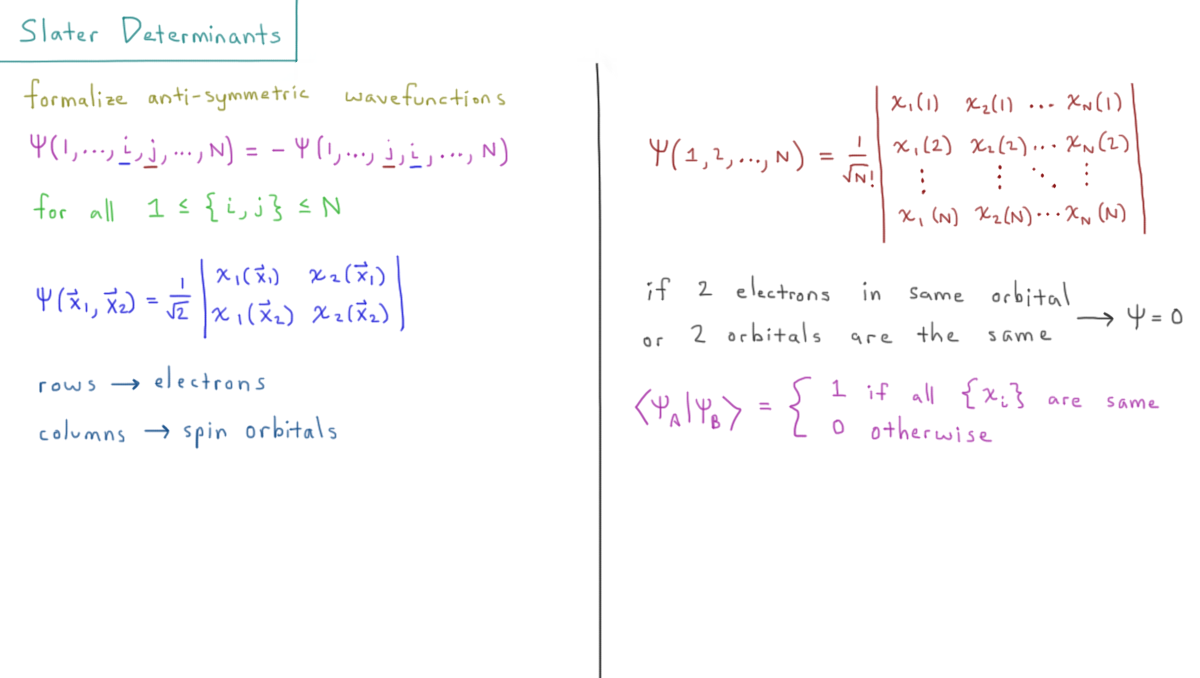 Slater Determinants
formalize anti-symmetric wavefunctions
Ψ(1,...,i,j,...,N) = - Ψ(1,...,j,i,...,N)
for all 1 ≤ {i,j} ≤ N
Ψ(x⃗₁, x⃗₂) = 1/√2 | χ₁(x⃗₁) χ₂(x⃗₁) |
| χ₁(x⃗₂) χ₂(x⃗₂) |
rows → electrons
columns → spin orbitals
Ψ(1,2,...,N) = 1/√N! | χ₁(1) χ₂(1) ... χ_N(1) |
| χ₁(2) χ₂(2) ... χ_N(2) |
| ⋮ ⋮ ⋱ ⋮ |
| χ₁(N) χ₂(N) ... χ_N(N) |
if 2 electrons in same orbital
or 2 orbitals are the same → Ψ = 0
⟨Ψ_A|Ψ_B⟩ = { 1 if all {χᵢ} are same
0 otherwise